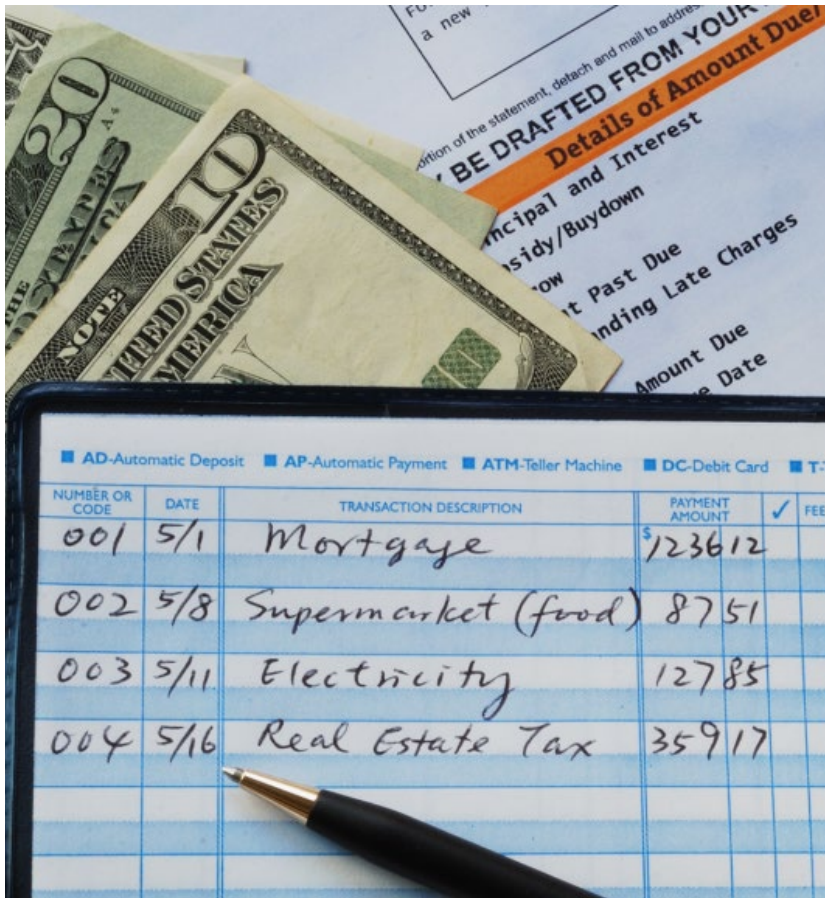 a new
portion of the statement, detach and mail to address
BE DRAFTED FROM YOUR
Details of Amount Due/
and Interest
/Buydown
Past Due
Late Charges
Amount Due
Date
20
A4
THE
10
NOTE
UNITED STATES
AMERICA
AD-Automatic Deposit AP-Automatic Payment ATM-Teller Machine DC-Debit Card T-
NUMBER OR CODE DATE TRANSACTION DESCRIPTION PAYMENT AMOUNT ✓ FEE
001 5/1 Mortgage $1236 12
002 5/8 Supermarket (food) 87 51
003 5/11 Electricity 127 85
004 5/16 Real Estate Tax 359 17